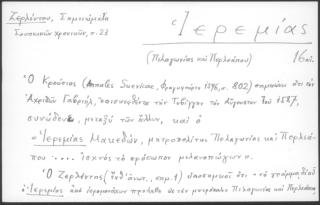 Ζερλέντου, Σημειώματα
Σουηκικῶν χρονικῶν, σ. 23
Ἱερεμίας
(Πελαγωνίας καὶ Περλεάπου)
16 αἰ.
Ὁ Κρούσιος (Annales Suevicae, Φραγκφούρτη 1596, σ. 802) σημειώνει ὅτι τὸν
Ἀχριδῶν Γαβριήλ, ἐπισκεφθέντα τὴν Τυβίγγην τὸν Αὔγουστον τοῦ 1587,
συνώδευε, μεταξὺ τῶν ἄλλων, καὶ ὁ
Ἱερεμίας Μακεδών, μητροπολίτης Πελαγωνίας καὶ Περλεά-
που .... ἰσχνὸς τὸ πρόσωπον μελανοπώγων».
Ὁ Ζερλέντης (ἔνθ' ἀνωτ., σημ. 1) ὅτι «τὸ γράμμα
ὁ Ἱερεμίας ἀπὸ ἱερομονάχων προήχθη εἰς τὸν μητροπολίτην Πελαγωνίας καὶ Περλεάπου